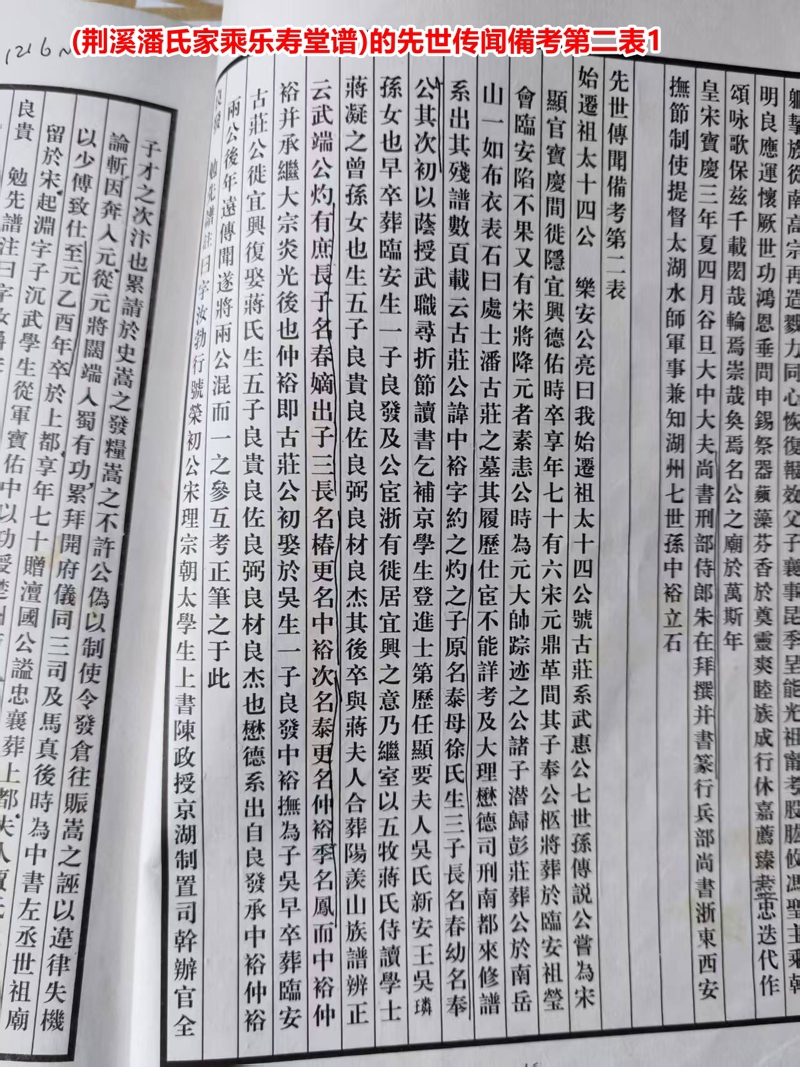 (荆溪潘氏家乘乐寿堂谱)的先世传闻備考第二表1
1216
明良應運懷厥世功鴻恩垂問申錫祭器蘋藻芬香於奠靈爽睦族成行休嘉薦臻 忠迭代作
頌咏歌保茲千載閎哉輪焉崇哉奐焉名公之廟於萬斯年
皇宋寶慶三年夏四月谷旦大中大夫尚書刑部侍郎朱在拜撰并書篆行兵部尚書浙東西安
撫節制使提督太湖水師軍事兼知湖州七世孫中裕立石
先世傳聞備考第二表
始遷祖太十四公 樂安公亮曰我始遷祖太十四公號古莊系武惠公七世孫傳説公嘗為宋
顯官寶慶間徙隱宜興德佑時卒享年七十有六宋元鼎革間其子奉公柩將葬於臨安祖塋
會臨安陷不果又有宋將降元者素恚公時為元大帥踪迹之公諸子潜歸彭莊葬公於南岳
山一如布衣表石曰處士潘古莊之墓其履歷仕宦不能詳考及大理懋德司刑南都來修譜
系出其殘譜數頁載云古莊公諱中裕字約之灼之子原名泰母徐氏生三子長名春幼名奉
公其次初以蔭授武職尋折節讀書乞補京學生登進士第歷任顯要夫人吳氏新安王吳璘
孫女也早卒葬臨安生一子良發及公宦浙有徙居宜興之意乃繼室以五牧蔣氏侍讀學士
蔣凝之曾孫女也生五子良貴良佐良弼良材良杰其後卒與蔣夫人合葬陽羨山族譜辨正
云武端公灼有庶長子名春嫡出子三長名椿更名中裕次名泰更名仲裕季名鳳而中裕仲
裕并承繼大宗炎光後也仲裕即古莊公初娶於吳生一子良發中裕撫為子吳早卒葬臨安
古莊公徙宜興復娶蔣氏生五子良貴良佐良弼良材良杰也懋德系出自良發承中裕仲裕
兩公後年遠傳聞遂將兩公混而一之參互考正筆之于此
良發 勉先譜注曰字汝勃行號榮初公宋理宗朝太學生上書陳政授京湖制置司幹辦官全
子才之次汴也累請於史嵩之發糧嵩之不許公偽以制使令發倉往賑嵩之誣以違律失機
論斬因奔入元從元將闊端入蜀有功累拜開府儀同三司及馬真後時為中書左丞世祖廟
以少傅致仕至元乙酉年卒於上都享年七十贈澶國公謚忠襄葬上都夫人
留於宋起淵字子沉武學生從軍寶佑中以功授楚州
良貴 勉先譜注曰字汝